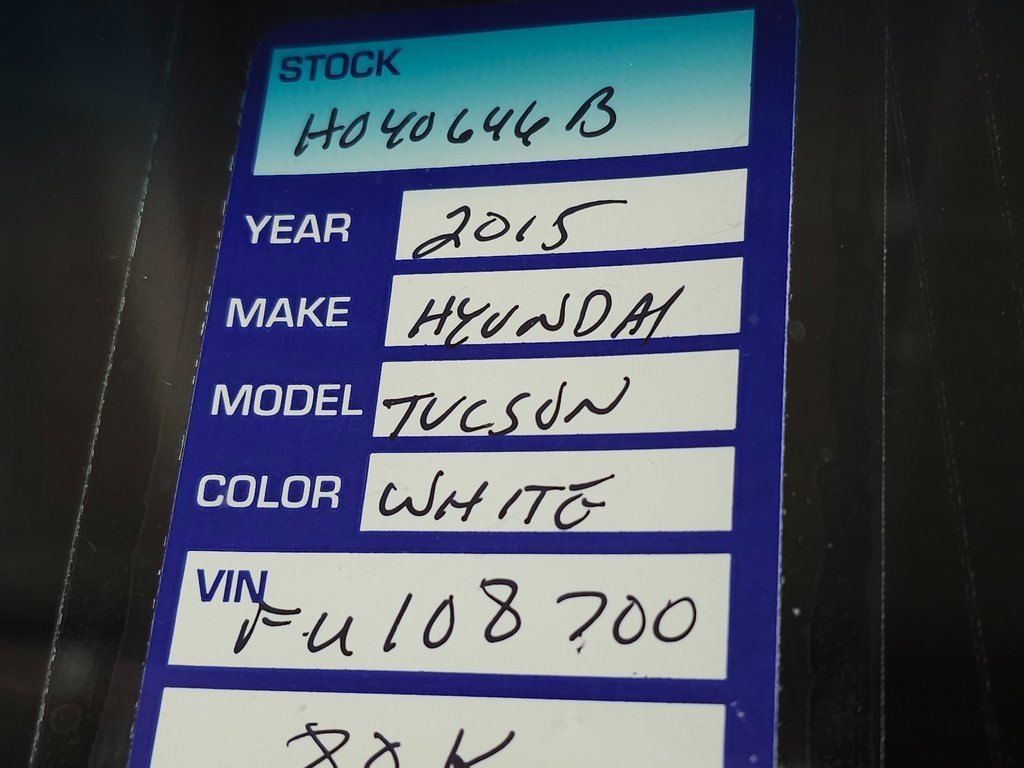 STOCK
H040646B
YEAR 2015
MAKE HYUNDAI
MODEL TUCSON
COLOR WHITE
VIN
FU108700